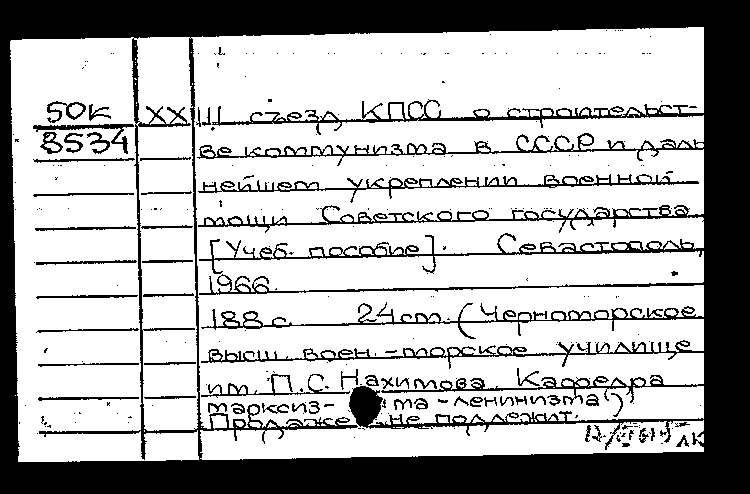 50к XXIII съезд КПСС о строительст-
8534 ве коммунизма в СССР и даль
нейшем укреплении военной
мощи Советского государства
[Учеб. пособие]. Севастополь,
1966
188 с 24 cm. (Черноморское
высш. воен.-морское училище
им. П.С. Нахимова. Кафедра
марксиз- ма-ленинизма)
Продаже не подлежит.
лк